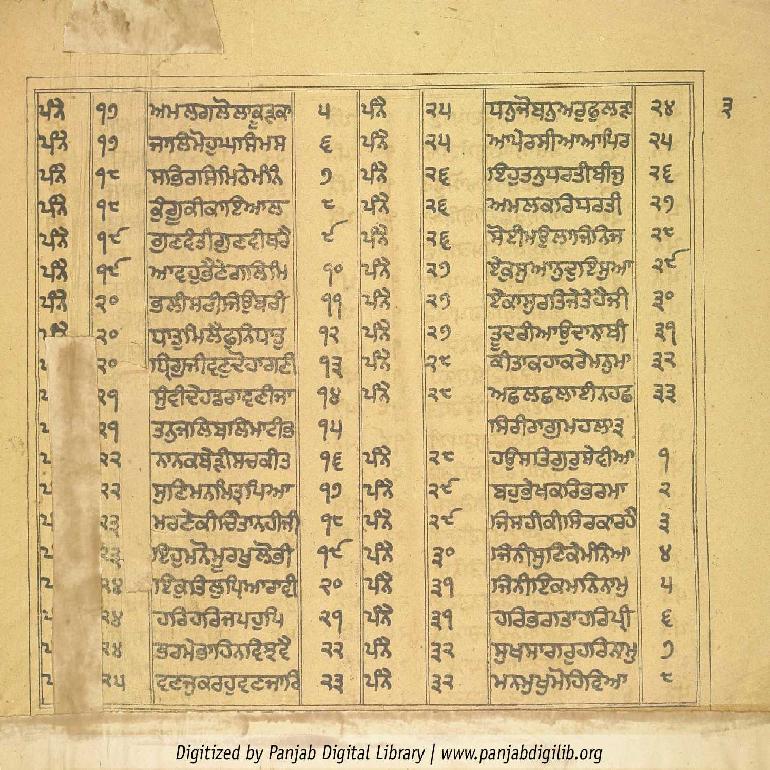 ਪੰਨੈ ੧੭ ਅਮਲਗਲੋਲਾਕੂੜਕਾ ੫ ਪੰਨੈ ੨੫ ਧਨੁਜੋਬਨੁਅਰੁਫੁਲੜਾ ੨੪ ੩
ਪੰਨੈ ੧੭ ਜਾਲਿਮੋਹੁਘਸਿਮਸ ੬ ਪੰਨੈ ੨੫ ਆਪੇਰਸੀਆਆਪਿਰ ੨੫
ਪੰਨੈ ੧੮ ਸਭਿਰਸਮਿਠੇਮੰਨਿ ੭ ਪੰਨੈ ੨੬ ਇਹੁਤਨੁਧਰਤੀਬੀਜੁ ੨੬
ਪੰਨੈ ੧੮ ਕੁੰਗੂਕੀਕਾਂਇਆਲ ੮ ਪੰਨੈ ੨੬ ਅਮਲਕਰਿਧਰਤੀ ੨੭
ਪੰਨੈ ੧੯ ਗੁਣਵੰਤੀਗੁਣਵੀਥਰੈ ੯ ਪੰਨੈ ੨੬ ਸੋਈਮਉਲਾਜਿਨਿਜ ੨੮
ਪੰਨੈ ੧੯ ਆਵਹੁਭੈਣੇਗਲਿਮਿ ੧੦ ਪੰਨੈ ੨੭ ਏਕੁਸੁਆਨੁਦੁਇਸੁਆ ੨੯
ਪੰਨੈ ੨੦ ਭਲੀਸਰੀਜਿਉਬਰੀ ੧੧ ਪੰਨੈ ੨੭ ਏਕਾਸੁਰਤਿਜੇਤੇਹੈਜੀ ੩੦
ਪੰਨੈ ੨੦ ਧਾਤੁਮਿਲੈਫੁਨਿਧਾਤੁ ੧੨ ਪੰਨੈ ੨੭ ਤੂਦਰੀਆਉਦਾਨਾਬੀ ੩੧
੨੦ ਧ੍ਰਿਗੁਜੀਵਣੁਦੋਹਾਗਣੀ ੧੩ ਪੰਨੈ ੨੮ ਕੀਤਾਕਹਾਕਰੇਮਨਮਾ ੩੨
੨੧ ਸੁੰਞੀਦੇਹਡਰਾਵਣੀਜਾ ੧੪ ਪੰਨੈ ੨੮ ਅਛਲਛਲਾਈਨਹਛ ੩੩
੨੧ ਤਨੁਜਲਿਬਲਿਮਾਟੀਭ ੧੫ ਸਿਰੀਰਾਗੁਮਹਲਾ੩
੨੨ ਨਾਨਕਬੇੜੀਸਚਕੀਤ ੧੬ ਪੰਨੈ ੨੮ ਹਉਸਤਿਗੁਰੁਸੇਵੀਆ ੧
੨੨ ਸੁਣਿਮਨਮਿਤ੍ਰਪਿਆ ੧੭ ਪੰਨੈ ੨੯ ਬਹੁਭੇਖਕਰਿਭਰਮਾ ੨
੨੩ ਮਰਣੈਕੀਚਿੰਤਾਨਹੀਜੀ ੧੮ ਪੰਨੈ ੨੯ ਜਿਸਹੀਕੀਸਿਰਕਾਰਹੈ ੩
੨੩ ਇਹੁਮਨੋਮੂਰਖੁਲੋਭੀ ੧੯ ਪੰਨੈ ੩੦ ਜਿਨੀਸੁਣਿਕੈਮੰਨਿਆ ੪
੨੪ ਇਕੁਤਿਲੁਪਿਆਰਾਵੀ ੨੦ ਪੰਨੈ ੩੧ ਜਿਨੀਇਕਮਨਿਨਾਮੁ ੫
੨੪ ਹਰਿਹਰਿਜਪਹੁਪਿ ੨੧ ਪੰਨੈ ੩੧ ਹਰਿਭਗਤਾਹਰਿਪ੍ਰੀ ੬
੨੪ ਭਰਮੇਭਾਹਿਨਵਿਝਵੈ ੨੨ ਪੰਨੈ ੩੨ ਸੁਖਸਾਗਰੁਹਰਿਨਾਮੁ ੭
੨੫ ਵਣਜੁਕਰਹੁਵਣਜਾਰਿ ੨੩ ਪੰਨੈ ੩੨ ਮਨਮੁਖੁਮੋਹਿਵਿਆ ੮
Digitized by Panjab Digital Library | www.panjabdigilib.org